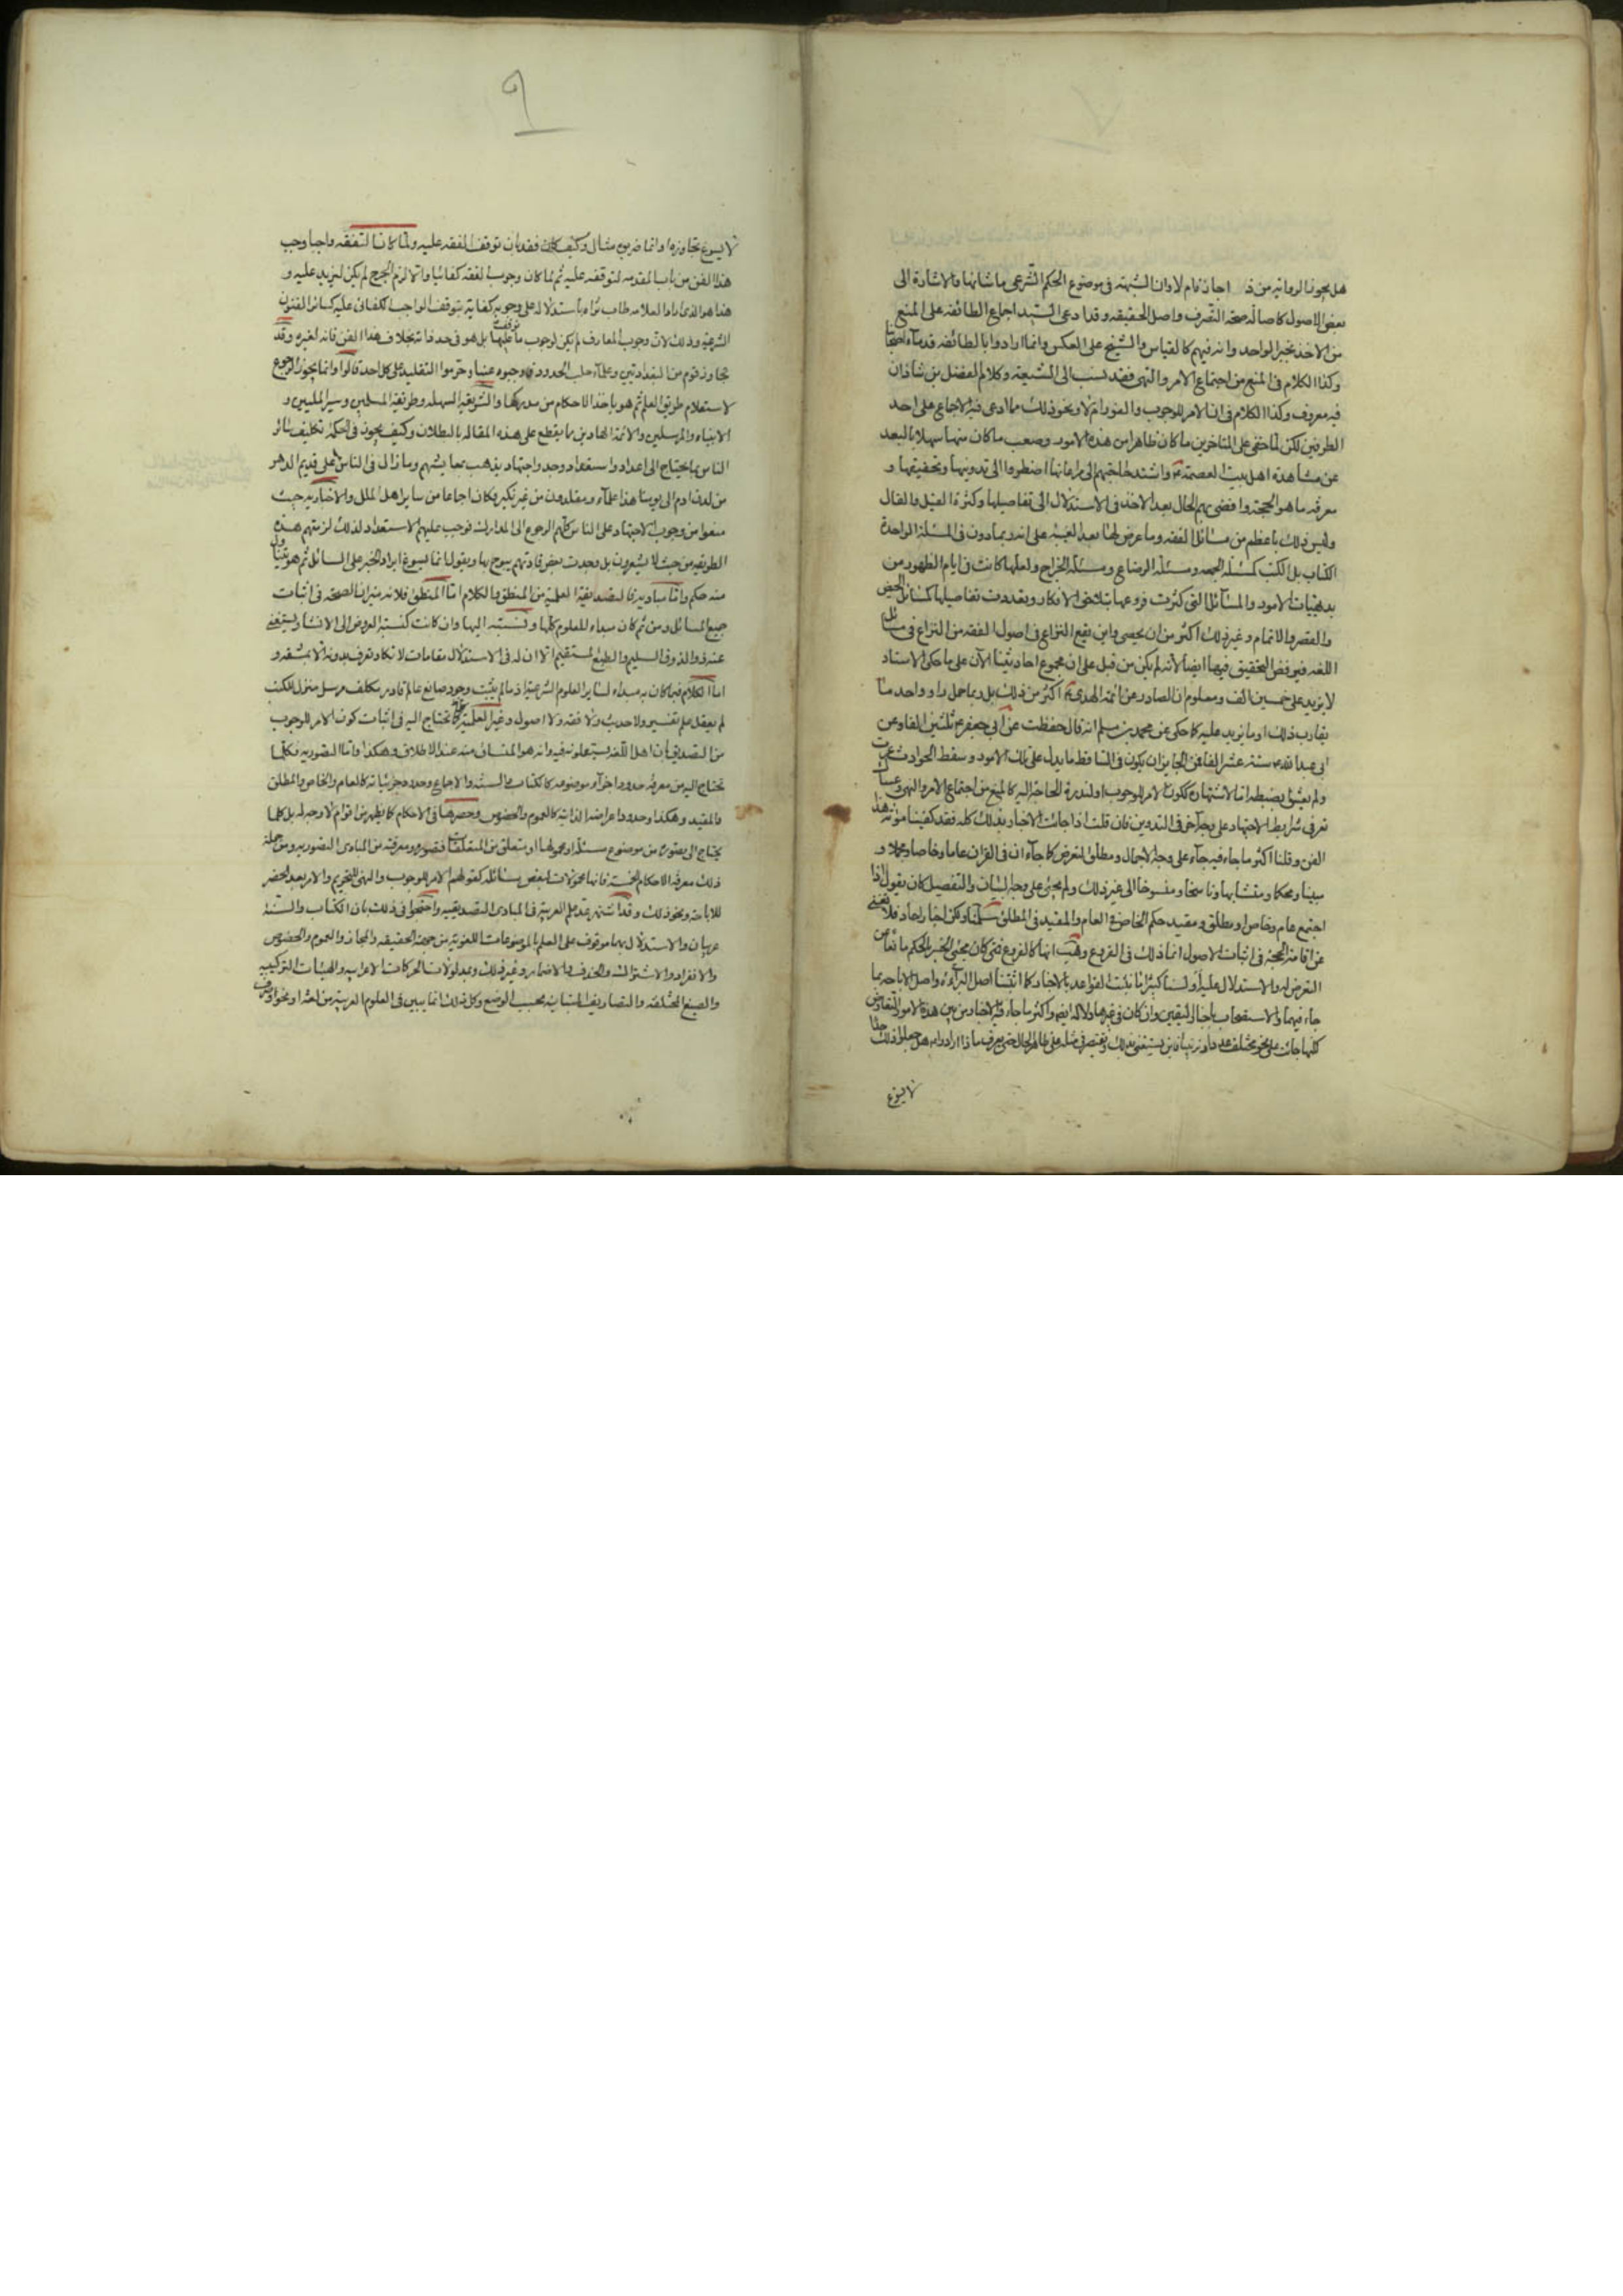 هل يجوز الرواية من ذ اجازة ام لا وان الشبهة في موضوع الحكم الشرعي ما شانها والاشارة الى
بعض الاصول كاصالة صحة التصرف واصل الحقيقه وقد ادعى السيد اجماع الطائفه على المنع
من الاخذ بخبر الواحد وانه فيهم كالقياس والشيخ على العكس وانما ارادوا بالطائفه قدماء اصحابنا
وكذا الكلام في المنع من اجتماع الامر والنهى فقد نسب الى الشيعة وكلام الفضل بن شاذان
فيه معروف وكذا الكلام في ان الامر للوجوب والفور ام لا ونحو ذلك مما ادعى فيه الاجماع على احد
الطرفين لكن لما خفى على المتاخرين ما كان ظاهرا من هذه الامور وصعب ما كان منها سهلا بالبعد
عن مشاهدة اهل بيت العصمة واشتد حاجتهم الى مراعاتها اضطروا الى تدوينها وتحقيقها و
معرفه ما هو الحجة وافضى بهم الحال بعد الاخذ في الاستدلال الى تفاصيلها وكثرة القيل والقال
وليس ذلك باعظم من مسائل الفقه وما عرض لها بعد الغيبة على انه ويتمادون في المسئلة الواحدة
الكتاب بل الكتب كمسئلة الجمعه ومسئلة الرضاع ومسئلة الخراج ولعلها كانت في ايام الظهور من
بديهيات الامور والمسائل التي كثرت فروعها بتلاحق الافكار وتعددت تفاصيلها كمسائل الحيض
والقصر والاتمام وغير ذلك اكثر من ان يحصى واين يقع النزاع في اصول الفقه من النزاع في مسائل
اللغه فيه ففى التحقيق فيها ايضا لانه لم يكن من قبل على ان مجموع احاديثنا الآن على ما حكى الاستاد
لا يزيد على خمسين الف ومعلوم ان الصادر عن ائمة الهدى اكثر من ذلك بل ربما حمل راو واحد ما
يقارب ذلك او ما يزيد عليه كما حكى عن محمد بن مسلم انه قال حفظت عن ابي جعفر ثلثين الفا وعن
ابي عبد الله ستة عشر الفا فمن الجايز ان يكون في الساقط ما يدل على تلك الامور وسقط الحوادث
ولم يعتنوا بضبطه اما لاشتهاره ككون الامر للوجوب او لندرة الحاجة اليه كالمنع من اجتماع الامر والنهى
تعرف شرايط الاجتهاد على وجه آخر في التدوين فان قلت اذا جائت الاخبار بذلك كله فقد كفينا مؤنة هذا
الفن وقلنا اكثر ما جاء فيه جآء على وجه الاجمال ومطلق التعرض كما جآء ان في القران عاما وخاصا ومجملا و
مبينا ومحكما ومتشابها وناسخا ومنسوخا الى غير ذلك ولم يجئ على وجه البيان والتفصيل كان يقول اذا
اجتمع عام وخاص او مطلق ومقيد حكم الخاص في العام والمقيد في المطلق سلمنا ولكن اخبار احاد فلا تغنى
عن اقامة الحجة في اثبات الاصول انما ذلك في الفروع وهب انها كالفروع فمتى كان مجئ الخبر بالحكم مانعا من
التعرض له والاستدلال عليه اولسنا كثيرا ما نثبت القواعد بالاخبار كما اثبتنا اصل البرآءة واصل الاباحة بما
جاء فيهما والاستصحاب باخبار اليقين وان كان في غيرها دلالة ايضا واكثر ما جاء فيه الاخبار من بين هذه الامور التعارض
لا يسوغ
لا يسوغ تجاوزه او انما ضرب مثال وكيف كان فقد بان توقف الفقه عليه ولما كان التفقه واجبا وجب
هذا الفن من باب المقدمه لتوقفه عليه ثم لما كان وجوب الفقه كفائيا والا لزم الحرج لم يكن ليزيد عليه و
هذا هو الذى اراد العلامه طاب ثراه باستدلاله على وجوبه كفاية بتوقف الواجب الكفائى عليه كسائر الفنون
الشرعية وذلك لان وجوب المعارف لم يكن لوجوب ما توقف عليها بل هو في حد ذاته بخلاف هذا الفن فانه لغيره وقد
تجاوز قوم من البغداديين وعلمآء حلب الحدود فاوجبوه عينا وحرموا التقليد على كل احد قالوا وانما يجوز الرجوع
لاستعلام طريق العلم ثم هو ياخذ الاحكام من مدركها والشريعة السهله وطريقة المسلمين وسير المليين و
الانبياء والمرسلين والائمة الهادين مما يقطع على هذه المقالة بالبطلان وكيف يجوز في الحكمة تكليف سائر
الناس بما يحتاج الى اعداد واستعداد وجد واجتهاد يذهب بمعايشهم وما زال في الناس على قديم الدهر
من لدن ادم الى يومنا هذا علمآء ومقلدون من غير نكير فكان اجماعا من ساير اهل الملل والاخباريه حيث
منعوا من وجوب الاجتهاد على الناس كانهم الرجوع الى المدارك فوجب عليهم الاستعداد لذلك لزمتهم هذه
الطريقه من حيث لا يشعرون بل وجدت بعض قادتهم يبوح بها ويقول انما يسوغ ايراد الخبر على السائل ثم هو يتناول
منه حكم واما مباديه فالتصديقية العلمية من المنطق والكلام اما المنطق فلانه ميزان الصحة في اثبات
جميع المسائل ومن ثم كان مبداء للعلوم كلها ونسبته اليها وان كانت كنسبة العروض الى الانشاء ليستغنى
عنه ذو الذوق السليم والطبع المستقيم الا ان له في الاستدلال مقامات لا تكاد تعرف بدونه الا بمشقه و
اما الكلام فهو كان به مبداء لساير العلوم الشرعية اذ ما لم يثبت وجود صانع عالم قادر مكلف مرسل منزل للكتب
لم يعقل علم تفسير ولا حديث ولا فقه ولا اصوله وغير العلمية كما تحتاج اليه في اثبات كون الامر للوجوب
من التصديق بان اهل اللغه يستعملونه فيه وانه هو المنساق منه عند الاطلاق وهكذا واما التصوريه فكلما
تحتاج اليه من معرفة حدود اجزاء موضوعه كالكتاب والسنة والاجماع وحدود جزئياته كالعام والخاص والمطلق
والمقيد وهكذا وحدود اعراضه الذاتية كالعموم والخصوص وحصرها في الاحكام كما يظهر من اقوام لا وجه له بل كلما
يحتاج الى تصوره من موضوع مسئلة او محمولها او يتعلق من المتعلقات فتصوره ومعرفته من المبادى التصوريه ومن جملة
ذلك معرفة الاحكام الخمسة فانها محمولات لبعض مسائله كقولهم الامر للوجوب والنهى للتحريم والامر بعد الحضر
للاباحة ونحو ذلك وقد اشتهر عد علم العربية في المبادى التصديقيه واحتجوا في ذلك بان الكتاب والسنة
عربيان والاستدلال بهما موقوف على العلم بالموضوعات اللغوية من جهة الحقيقه والمجاز والعموم والخصوص
والانفراد والاشتراك والحذف والاضمار وغير ذلك وبمدلولات الحركات الاعرابيه والهيئات التركيبيه
والصيغ المختلفه والتصاريف المتباينه بحسب الوضع وكل ذلك انما يبين في العلوم العربية من لغة او نحو او صرف